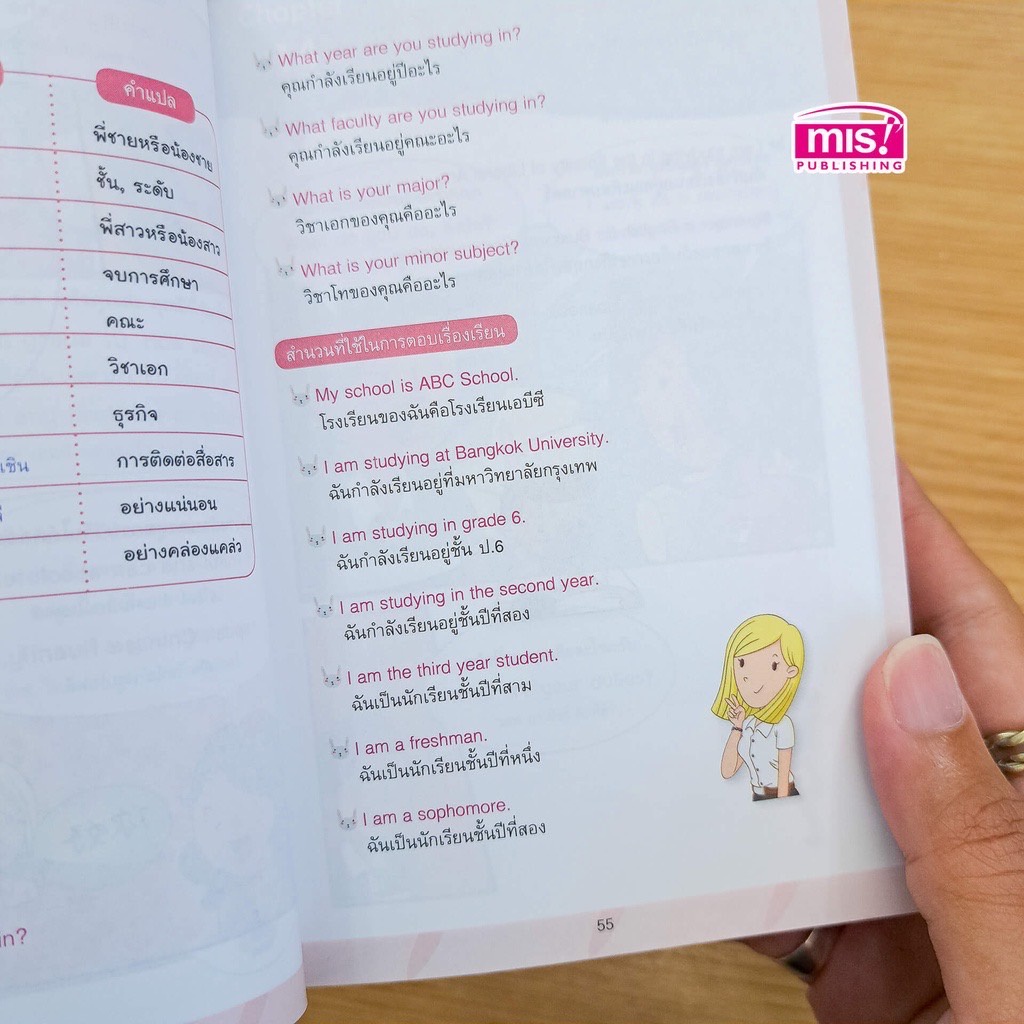 คำแปล
พี่ชายหรือน้องชาย
ชั้น, ระดับ
พี่สาวหรือน้องสาว
จบการศึกษา
คณะ
วิชาเอก
ธุรกิจ
เชิน
การติดต่อสื่อสาร
อย่างแน่นอน
อย่างคล่องแคล่ว
in?
What year are you studying in?
คุณกำลังเรียนอยู่ปีอะไร
What faculty are you studying in?
คุณกำลังเรียนอยู่คณะอะไร
What is your major?
วิชาเอกของคุณคืออะไร
What is your minor subject?
วิชาโทของคุณคืออะไร
สำนวนที่ใช้ในการตอบเรื่องเรียน
My school is ABC School.
โรงเรียนของฉันคือโรงเรียนเอบีซี
I am studying at Bangkok University.
ฉันกำลังเรียนอยู่ที่มหาวิทยาลัยกรุงเทพ
I am studying in grade 6.
ฉันกำลังเรียนอยู่ชั้น ป.6
I am studying in the second year.
ฉันกำลังเรียนอยู่ชั้นปีที่สอง
I am the third year student.
ฉันเป็นนักเรียนชั้นปีที่สาม
I am a freshman.
ฉันเป็นนักเรียนชั้นปีที่หนึ่ง
I am a sophomore.
ฉันเป็นนักเรียนชั้นปีที่สอง
55
mis!
PUBLISHING